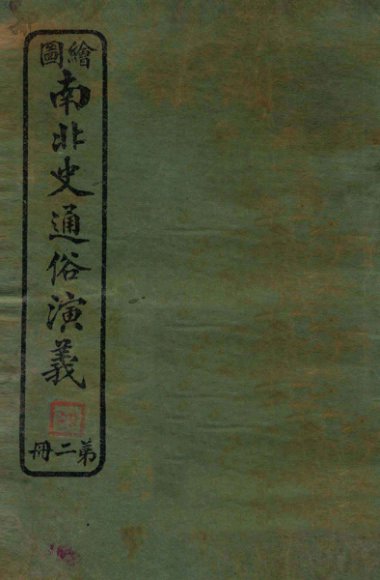 繪圖
南北史通俗演義
第二冊